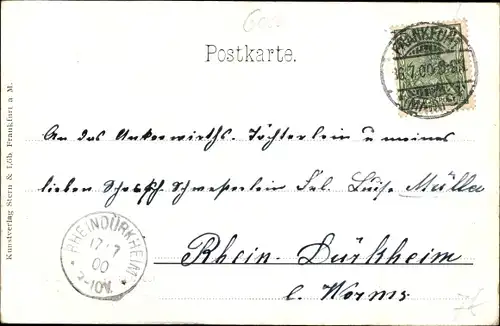 Postkarte.
FRANKFURT
7.00.8-9
(MAIN)
An das Ankerwirths-Töchterlein u meines
lieben Schwesterlein Frl. Luise Müller
Rhein-Dürkheim
b. Worms
RHEINDÜRKHEIM
17 7
00
9-10V.
Kunstverlag Stern & Löb. Frankfurt a M.